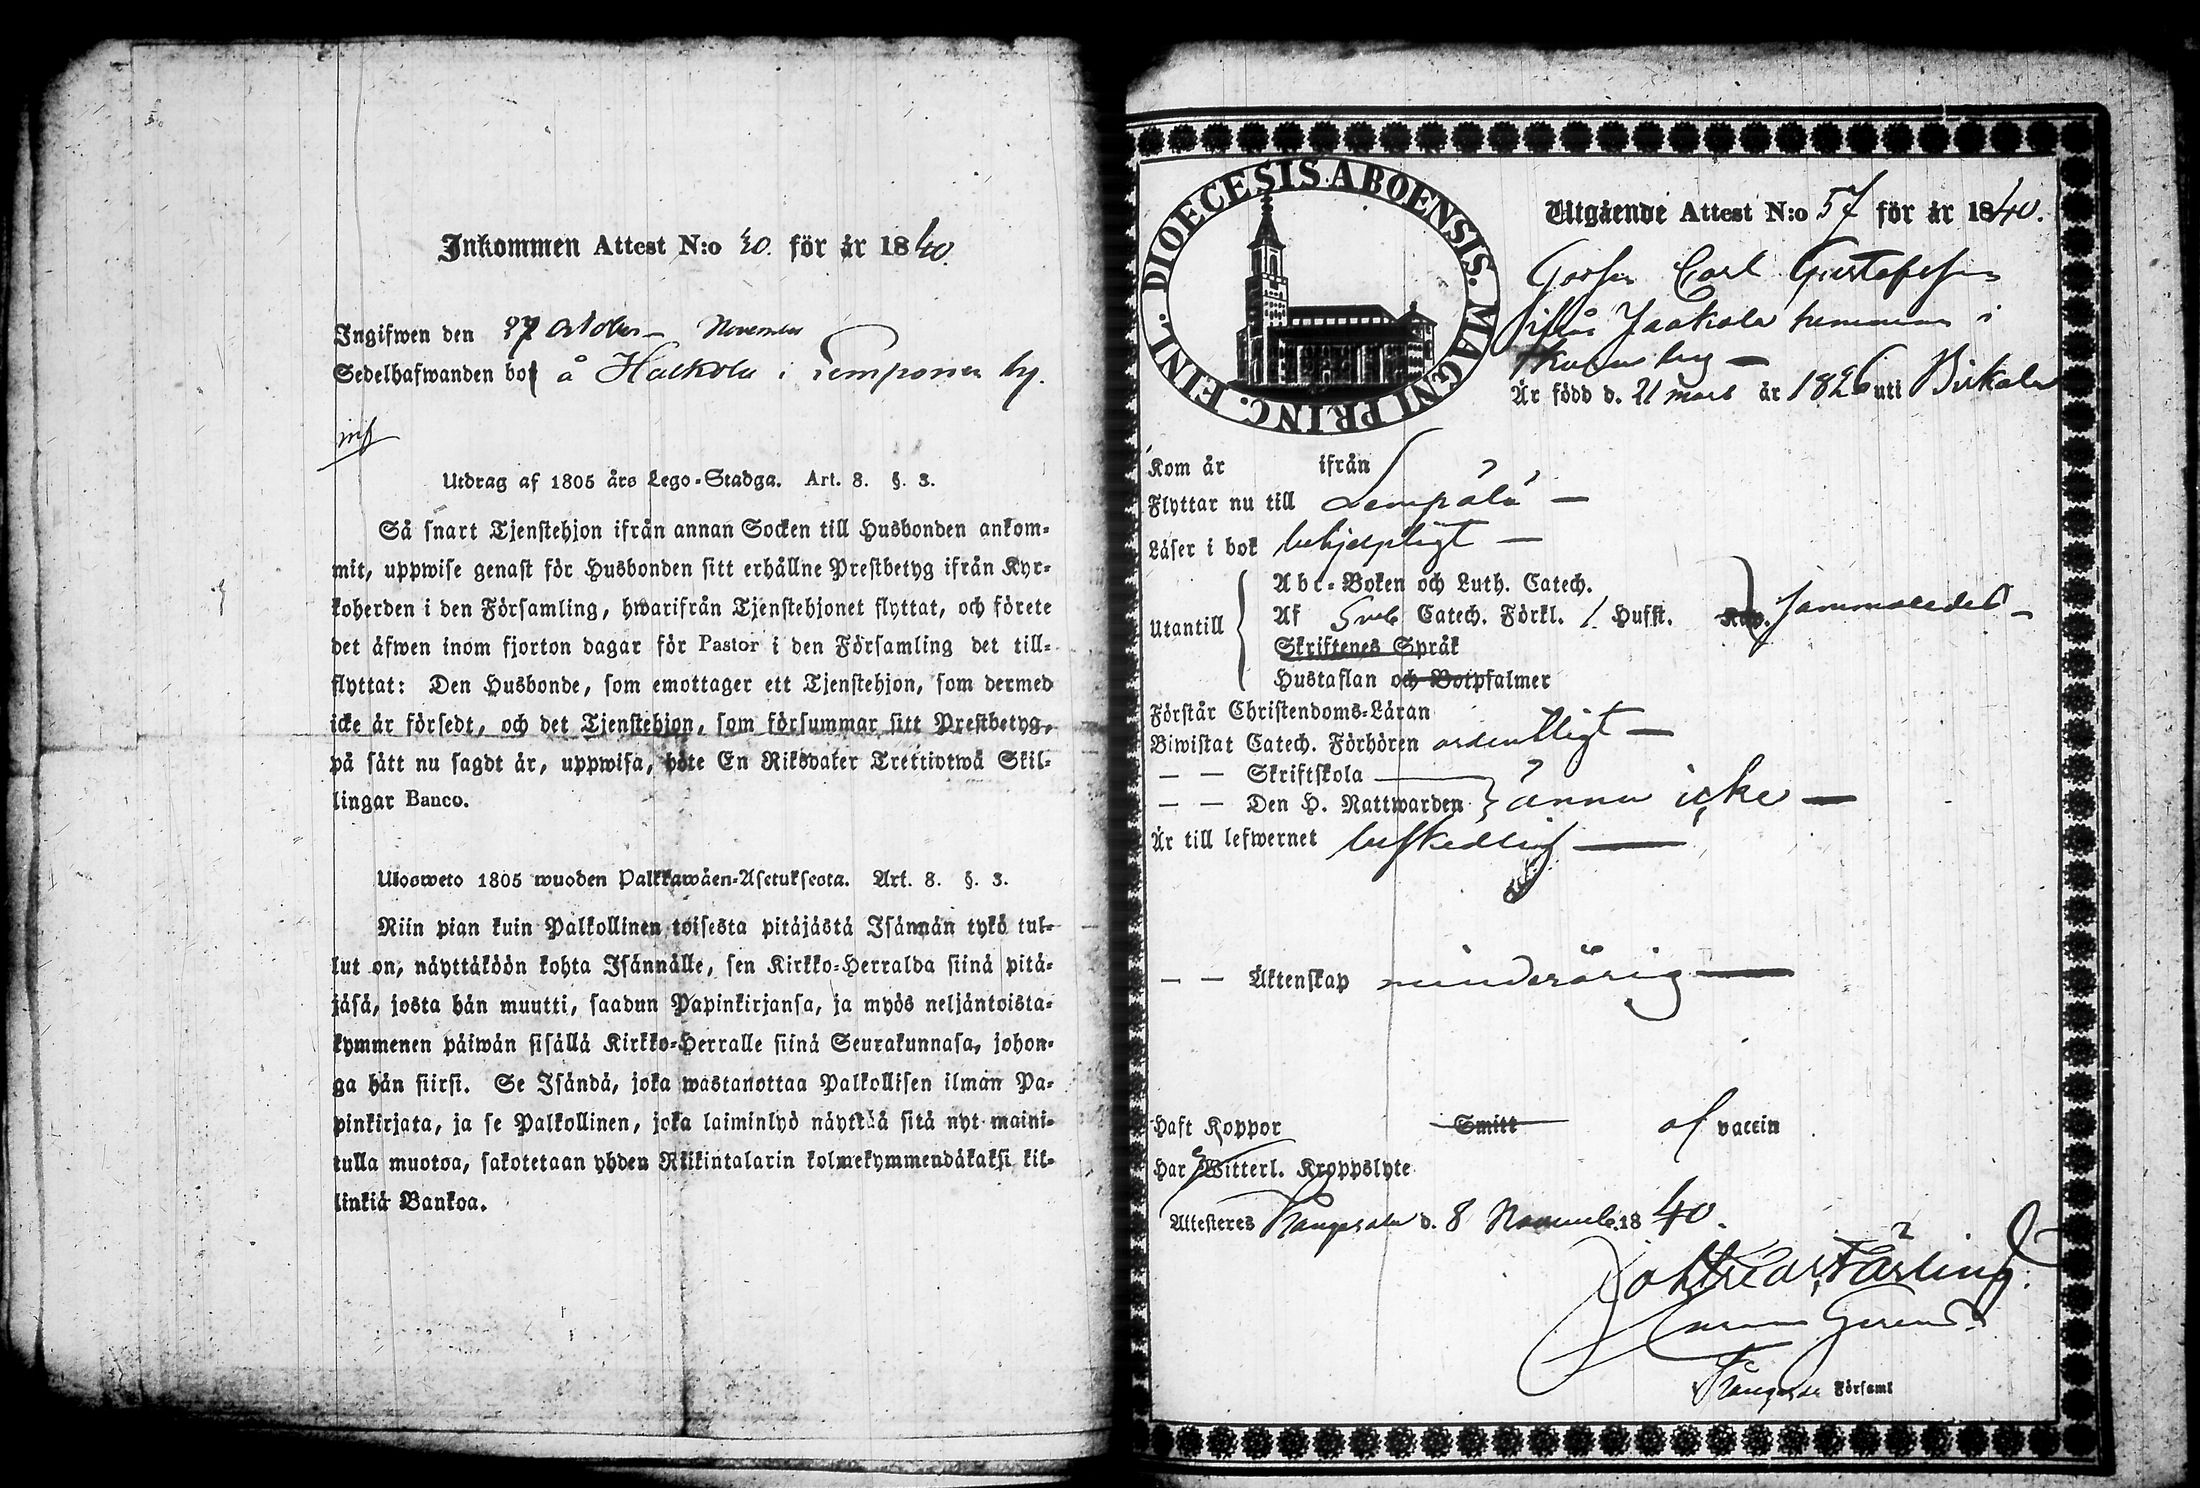 Inkommen Attest N:o 20. för år 1840.
Ingifwen den 27 October November
Sedelhafwanden bor å Halkola i by.
Utdrag af 1805 års Lego-Stadga. Art. 8. §. 3.
Så snart Tjenstehjon ifrån annan Socken till Husbonden ankom-
mit, uppwise genast för Husbonden sitt erhållne Prestbetyg ifrån Kyr-
koherden i den Församling, hwarifrån Tjenstehjonet flyttat, och förete
det äfwen inom fjorton dagar för Pastor i den Församling det till-
flyttat: Den Husbonde, som emottager ett Tjenstehjon, som dermed
icke är försedt, och det Tjenstehjon, som försummar sitt Prestbetyg,
på sätt nu sagdt är, uppwisa, böte En Riksdaler Trettiotwå Skil-
lingar Banco.
Ulosweto 1805 wuoden Palkkawäen-Asetuksesta. Art. 8. §. 3.
Niin pian kuin Palkollinen toisesta pitäjästä Isännän tykö tul-
lut on, näyttäköön kohta Isännälle, sen Kirkko-Herralda siinä pitä-
jäsä, josta hän muutti, saadun Papinkirjansa, ja myös neljäntoista-
kymmenen päiwän sisällä Kirkko-Herralle siinä Seurakunnasa, johon-
ga hän siirsi. Se Isändä, joka wastanottaa Palkollisen ilman Pa-
pinkirjata, ja se Palkollinen, joka laiminlyö näyttää sitä nyt maini-
tulla muotoa, sakotetaan yhden Riikintalarin kolmekymmendäkaksi kil-
linkiä Bankoa.
DIOECESIS ABOENSIS. MAGNI PRINC. FINL.
Utgående Attest N:o 57 för år 1840.
Gossen Carl Gustafsson
ifrån Jaakola hemman i
by
Är född d. 21 mars år 1826 uti Birkala
Kom år ifrån
Flyttar nu till Lempälä
Läser i bok behjelpligt
Utantill
Abc-Boken och Luth. Catech.
Af Sveb Catech. Förkl. 1 Hufst. Kap. sammaledes
Skriftenes Språk
Hustaflan och Botpsalmer
Förstår Christendoms-Läran
Biwistat Catech. Förhören ordentligt
— — Skriftskola
— — Den H. Nattwarden ännu icke
Är till lefwernet beskedlig
— — Äktenskap minderårig
Haft Koppor Smitt af vaccin
Har Witterl. Kroppslyte
Attesteras Kangasala d. 8 Novemb. 1840.
Färling.
Kangasala Församl